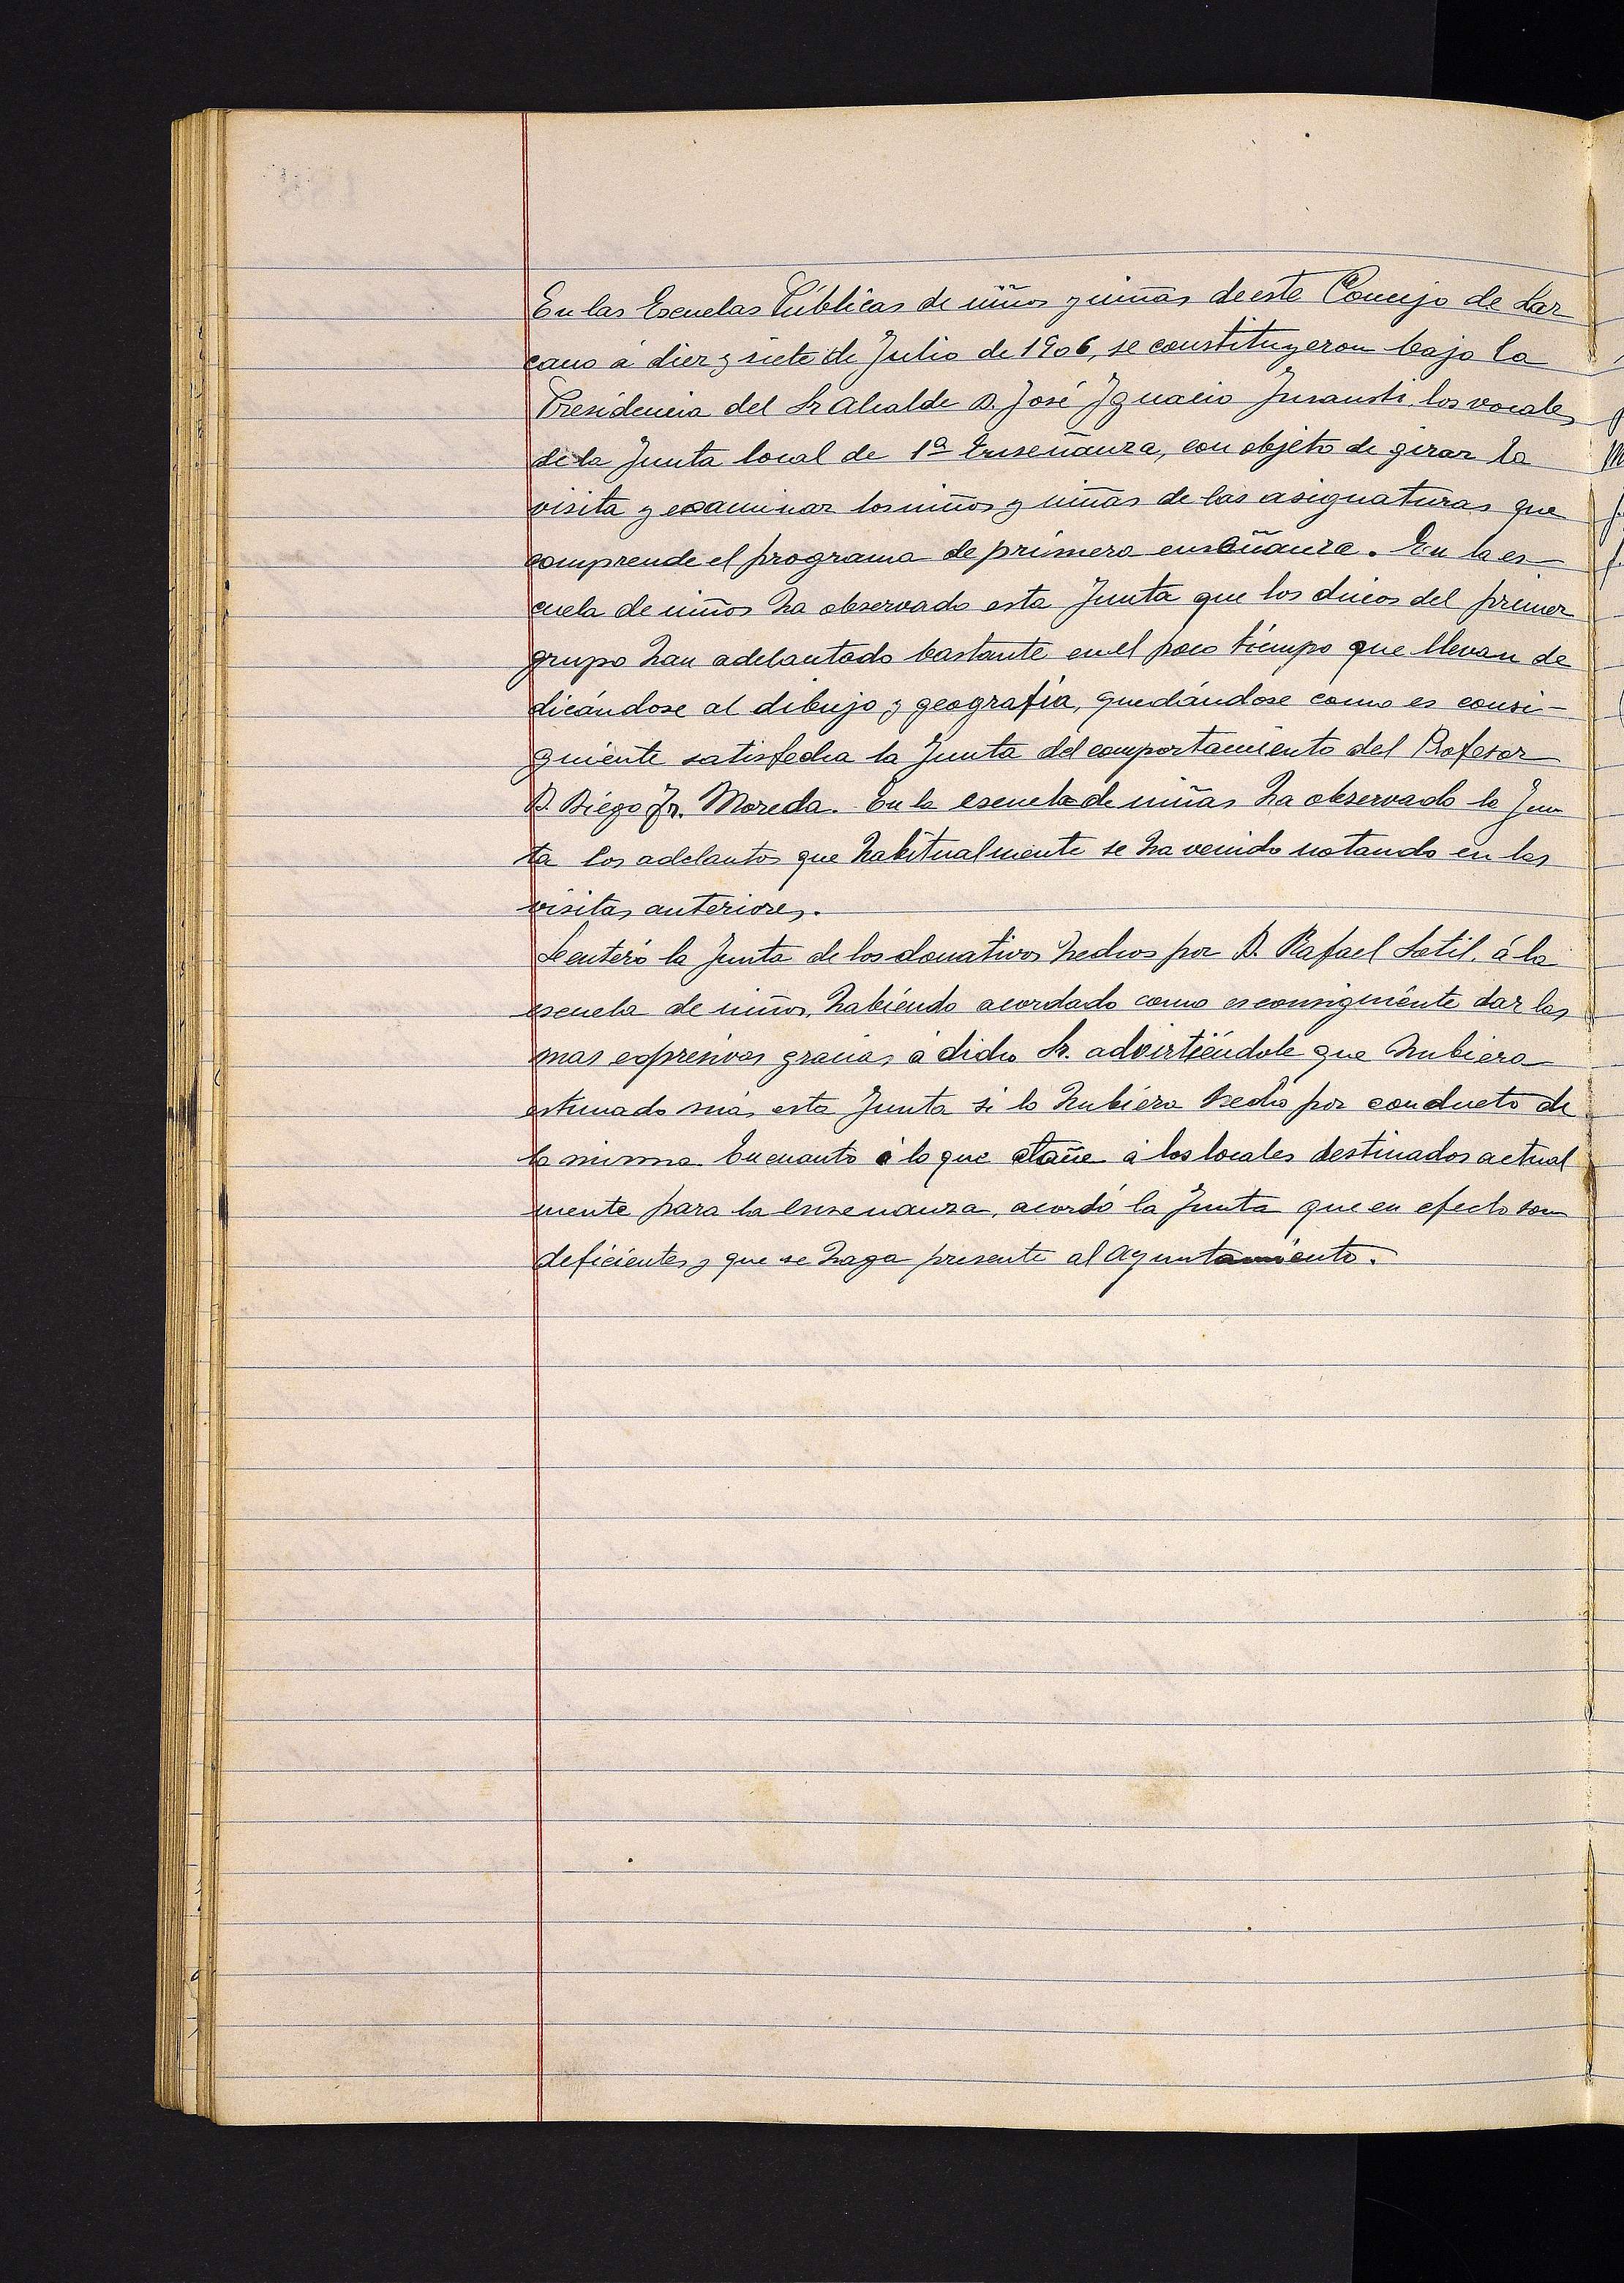 En las Escuelas Públicas de niños y niñas de este Concejo de Laz
cano á diez y siete de Julio de 1906, se constituyeron bajo la
Presidencia del Sr Alcalde D. José Ignacio Insausti, los vocales
de la Junta local de 1ª Enseñanza, con objeto de girar la
visita y examinar los niños y niñas de las asignaturas que
comprende el programa de primera enseñanza. En la es
cuela de niños ha observado esta Junta que los chicos del primer
grupo han adelantado bastante en el poco tiempo que llevan de
dicándose al dibujo y geografía, quedándose como es consi-
guiente satisfecha la Junta del comportamiento del Profesor
D. Diego Moreda. En la escuela de niñas ha observado la Jun
ta los adelantos que habitualmente se ha venido notando en las
visitas anteriores.
Se enteró la Junta de los donativos hechos por D. Rafael á la
escuela de niños, habiendo acordado como es consiguiente dar las
mas expresivas gracias á dicho Sr. advirtiéndole que hubiera
estimado más esta Junta si lo hubiera hecho por conducto de
la misma. En cuanto á lo que atañe á los locales destinados actual
mente para la enseñanza, acordó la Junta que en efecto son
deficientes y que se haga presente al Ayuntamiento.